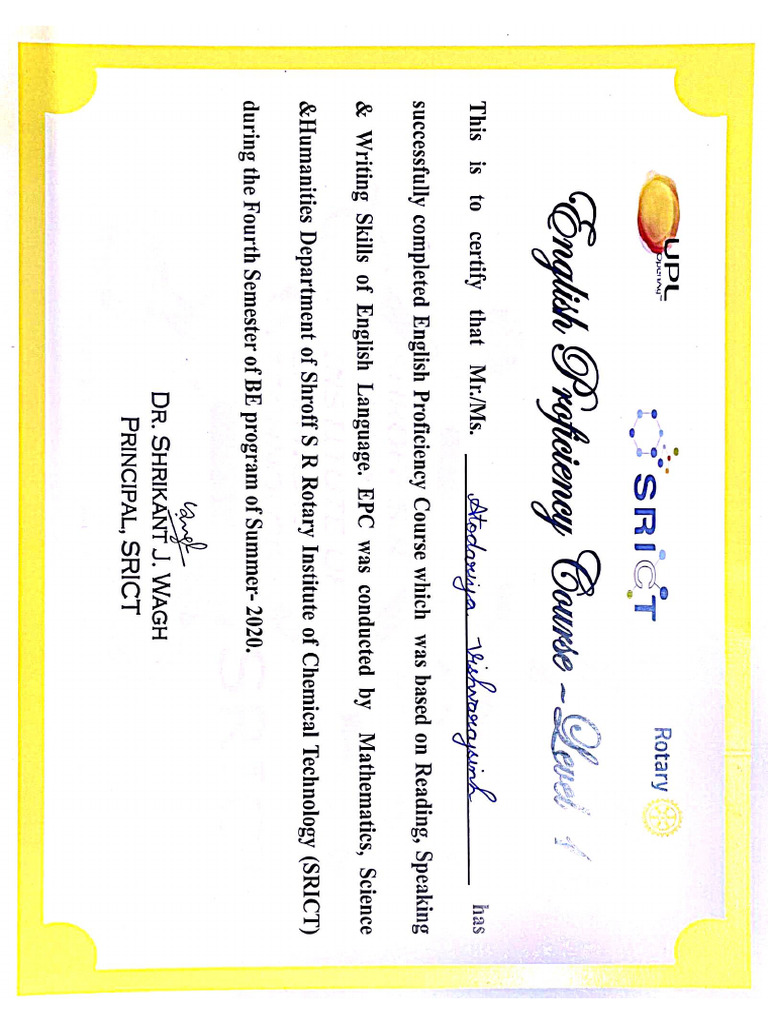 UPL
OpenAg™
SRICT
Rotary
English Proficiency Course - Level 1
This is to certify that Mr./Ms. Atodariya Vishvarajsinh has
successfully completed English Proficiency Course which was based on Reading, Speaking
& Writing Skills of English Language. EPC was conducted by Mathematics, Science
&Humanities Department of Shroff S R Rotary Institute of Chemical Technology (SRICT)
during the Fourth Semester of BE program of Summer- 2020.
DR. SHRIKANT J. WAGH
PRINCIPAL, SRICT